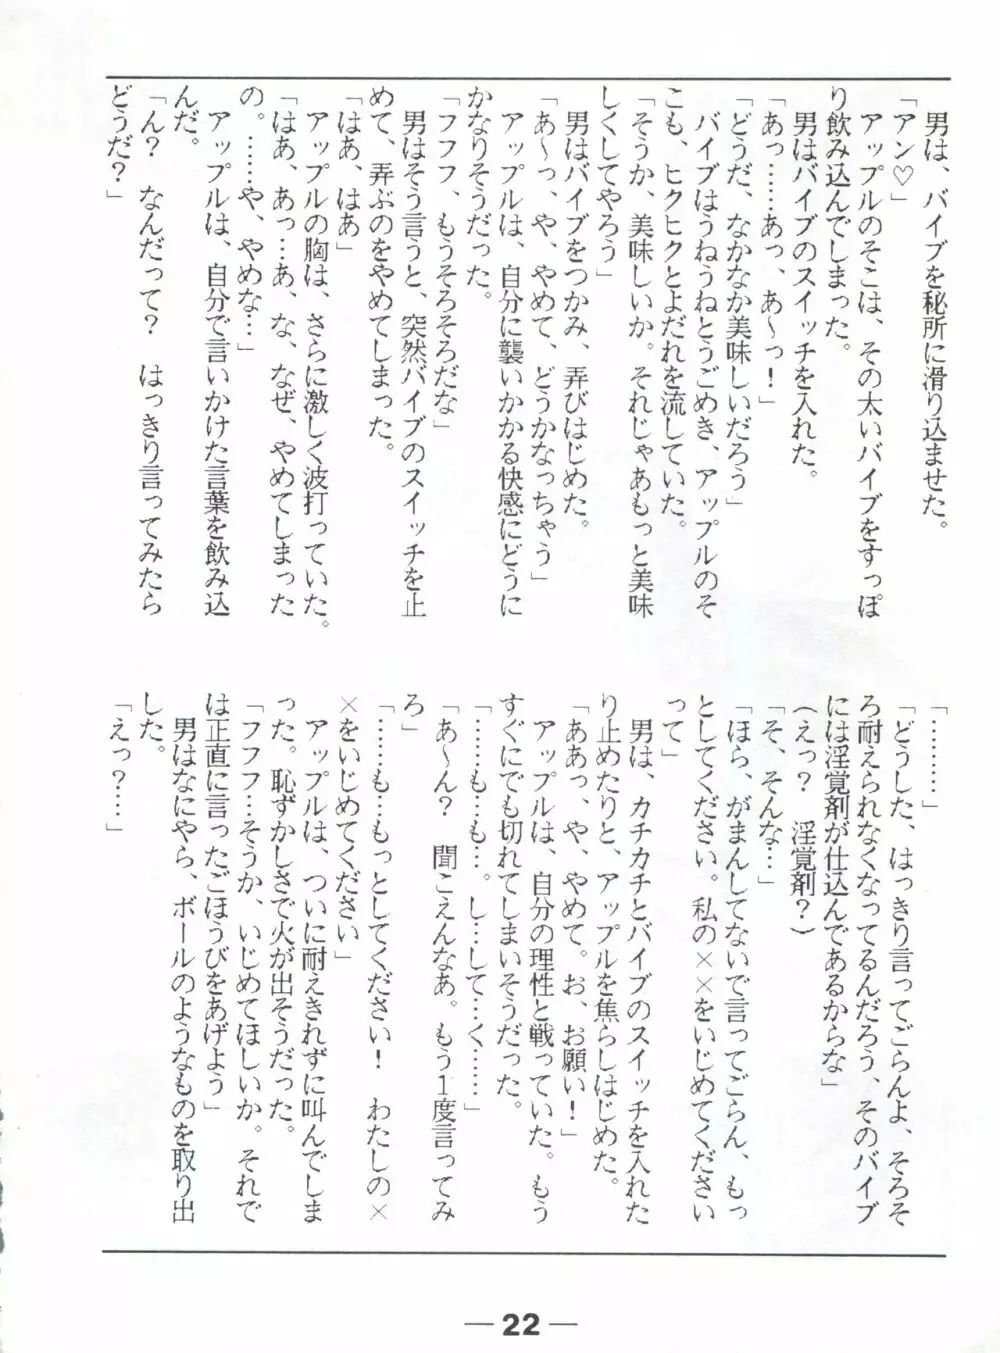 男は、バイブを秘所に滑り込ませた。
「アン♡」
アップルのそこは、その太いバイブをすっぽ
り飲み込んでしまった。
男はバイブのスイッチを入れた。
「あっ……あっ、あ～っ！」
「どうだ、なかなか美味しいだろう」
バイブはうねうねとうごめき、アップルのそ
こも、ヒクヒクとよだれを流していた。
「そうか、美味しいか。それじゃあもっと美味
しくしてやろう」
男はバイブをつかみ、弄びはじめた。
「あ～っ、や、やめて、どうかなっちゃう」
アップルは、自分に襲いかかる快感にどうに
かなりそうだった。
「フフフ、もうそろそろだな」
男はそう言うと、突然バイブのスイッチを止
めて、弄ぶのをやめてしまった。
「はあ、はあ」
アップルの胸は、さらに激しく波打っていた。
「はあ、あっ…あ、な、なぜ、やめてしまった
の。……や、やめな…」
アップルは、自分で言いかけた言葉を飲み込
んだ。
「ん？　なんだって？　はっきり言ってみたら
どうだ？」
「………」
「どうした、はっきり言ってごらんよ、そろそ
ろ耐えられなくなってるんだろう、そのバイブ
には淫覚剤が仕込んであるからな」
（えっ？　淫覚剤？）
「そ、そんな…」
「ほら、がまんしてないで言ってごらん、もっ
としてください。私の××をいじめてください
って」
男は、カチカチとバイブのスイッチを入れた
り止めたりと、アップルを焦らしはじめた。
「ああっ、や、やめて。お、お願い！」
アップルは、自分の理性と戦っていた。もう
すぐにでも切れてしまいそうだった。
「……も…も…。し…して…く……」
「あ～ん？　聞こえんなあ。もう１度言ってみ
ろ」
「……も…もっとしてください！　わたしの×
×をいじめてください」
アップルは、ついに耐えきれずに叫んでしま
った。恥ずかしさで火が出そうだった。
「フフフ…そうか、いじめてほしいか。それで
は正直に言ったごほうびをあげよう」
男はなにやら、ボールのようなものを取り出
した。
「えっ？…」
― 22 ―